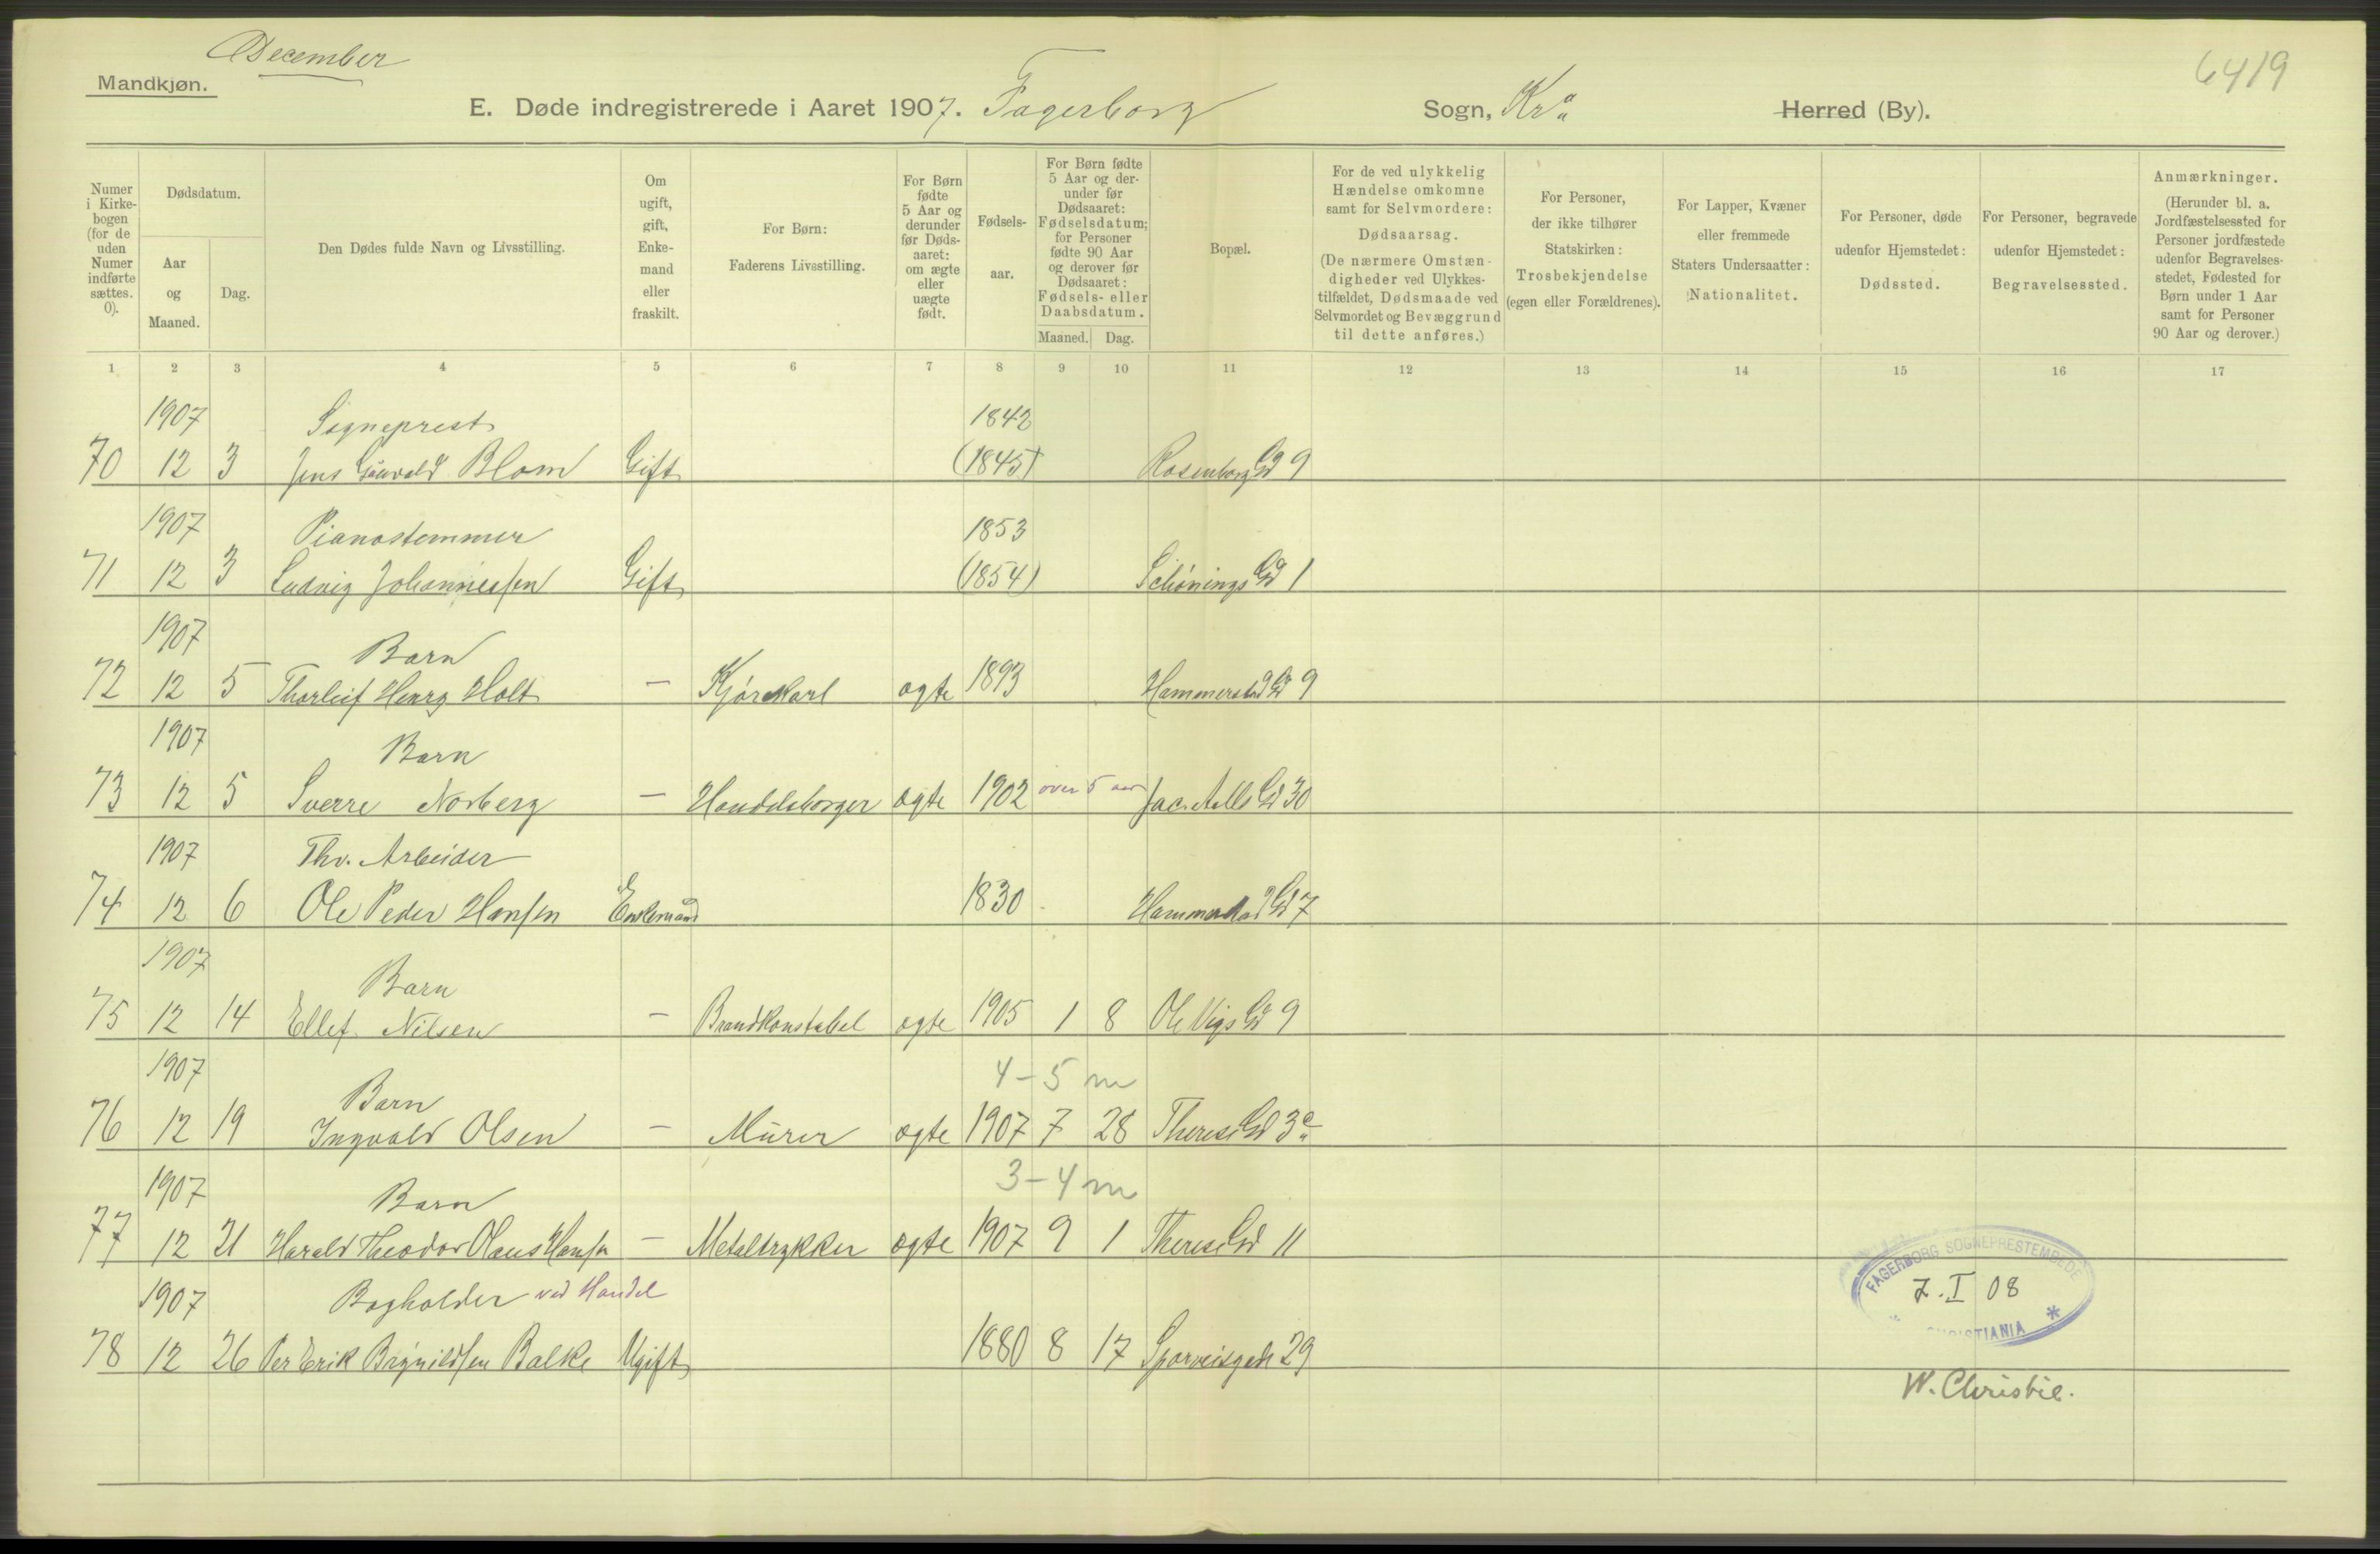 December
6419
Mandkjøn.
E. Døde indregistrerede i Aaret 1907. Fagerborg Sogn, Kra Herred (By).
Numer i Kirkebogen (for de uden Numer indførte sættes. 0).
Dødsdatum.
Aar og Maaned.
Dag.
Den Dødes fulde Navn og Livsstilling.
Om ugift, gift, Enkemand eller fraskilt.
For Børn:
Faderens Livsstilling.
For Børn fødte 5 Aar og derunder før Dødsaaret: om ægte eller uægte født.
Fødselsaar.
For Børn fødte 5 Aar og derunder før Dødsaaret: Fødselsdatum; for Personer fødte 90 Aar og derover før Dødsaaret: Fødsels- eller Daabsdatum.
Maaned. Dag.
Bopæl.
For de ved ulykkelig Hændelse omkomne samt for Selvmordere: Dødsaarsag. (De nærmere Omstændigheder ved Ulykkestilfældet, Dødsmaade ved Selvmordet og Bevæggrund til dette anføres.)
For Personer, der ikke tilhører Statskirken: Trosbekjendelse (egen eller Forældrenes).
For Lapper, Kvæner eller fremmede Staters Undersaatter: Nationalitet.
For Personer, døde udenfor Hjemstedet: Dødssted.
For Personer, begravede udenfor Hjemstedet: Begravelsessted.
Anmærkninger. (Herunder bl. a. Jordfæstelsessted for Personer jordfæstede udenfor Begravelsesstedet, Fødested for Børn under 1 Aar samt for Personer 90 Aar og derover.)
1 2 3 4 5 6 7 8 9 10 11 12 13 14 15 16 17
1907 Sogneprest 1842
70 12 3 Jens Blom Gift (1845) Rosenborg Gd 9
1907 Pianostemmer 1853
71 12 3 Ludvig Johannessen Gift (1854) Schønings Gd 1
1907 Barn
72 12 5 Thorleif Henry Holt — Kjørekarl ægte 1893 Hammerstad Gd 9
1907 Barn
73 12 5 Sverre Norberg — Handelsborger ægte 1902 over 5 aar Jac. Aalls Gd 30
1907 Thv. Arbeider
74 12 6 Ole Peder Hansen Enkemand 1830 Hammerstad Gd 7
1907 Barn
75 12 14 Ellef Nilsen — Brandkonstabel ægte 1905 1 8 Ole Vigs Gd 9
1907 Barn 4-5 m
76 12 19 Ingvald Olsen — Murer ægte 1907 7 28 Therese Gd 3c
1907 Barn 3-4 m
77 12 21 Harald Theodor Olaus Hansen — Metaltrykker ægte 1907 9 1 Therese Gd 11
1907 Bogholder ved Handel
78 12 26 Per Erik Brynildsen Balke Ugift 1880 8 17 Sporveisgade 29
FAGERBORG SOGNEPRESTEMBEDE
7. I 08
CHRISTIANIA
W. Christie.